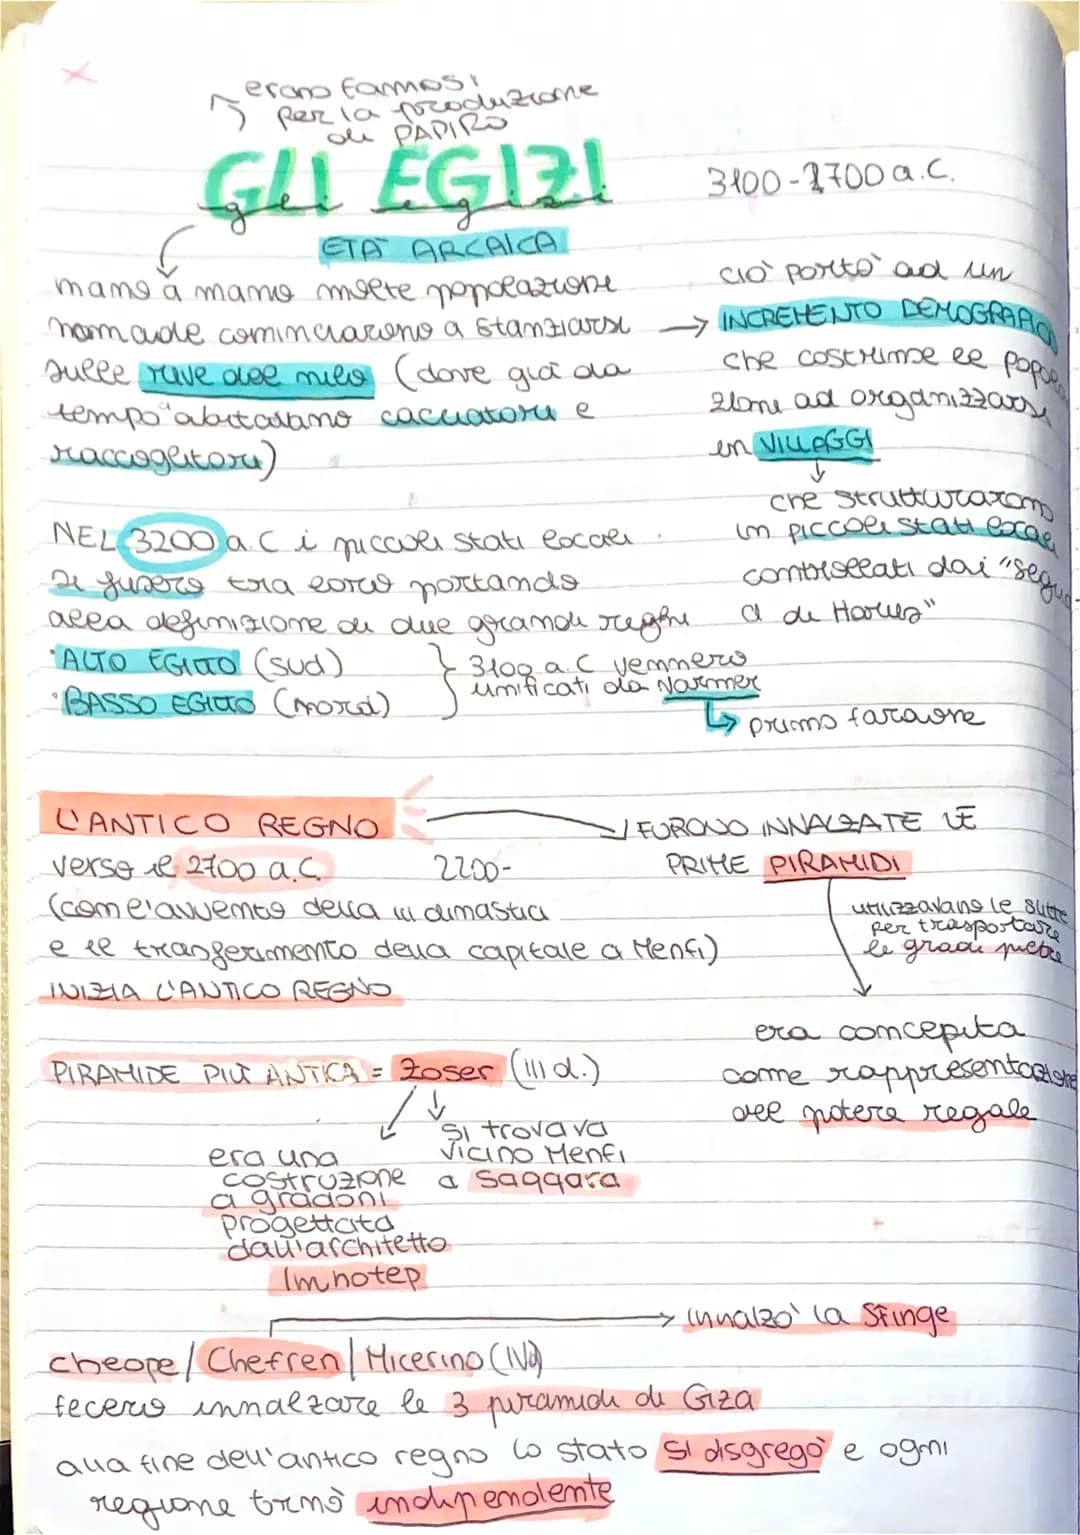 erano famosi
per la produzione
di PAPIRO
GLI EGIZI
gli egizi
3100-2700 a.C.
ETÀ ARCAICA
mano a mano molte popolazione
nomade cominciarono a stanziarsi
sulle rive del nilo (dove già da
tempo abitavano cacciatori e
raccoglitori)
ciò portò ad un
INCREMENTO DEMOGRAFICO
che costrinse le popola
zione ad organizzarsi
in VILLAGGI
che strutturarono
in piccoli stati locali
controllati dai "segua
ci di Horus"
NEL 3200 a.C i piccoli stati locali
si fusero tra loro portando
alla definizione di due grandi regni
•ALTO EGITTO (sud)
•BASSO EGITTO (nord)
3100 a.C vennero
unificati da Narmer
primo faraone
L'ANTICO REGNO
verso il 2700 a.C.
2200-
(con l'avvento della III dinastia
e il trasferimento della capitale a Menfi)
INIZIA L'ANTICO REGNO
FURONO INNALZATE LE
PRIME PIRAMIDI
utilizzavano le slitte
per trasportare
le gradi pietre
era concepita
come rappresentazione
del potere regale
PIRAMIDE PIÙ ANTICA = Zoser (III d.)
era una
costruzione
a gradoni
progettata
dall'architetto
Imhotep
si trovava
vicino Menfi
a Saqqara
innalzò la Sfinge
cheope/Chefren/Micerino (IVd)
fecero innalzare le 3 piramidi di Giza
alla fine dell'antico regno lo stato si disgregò e ogni
regione tornò indipendente